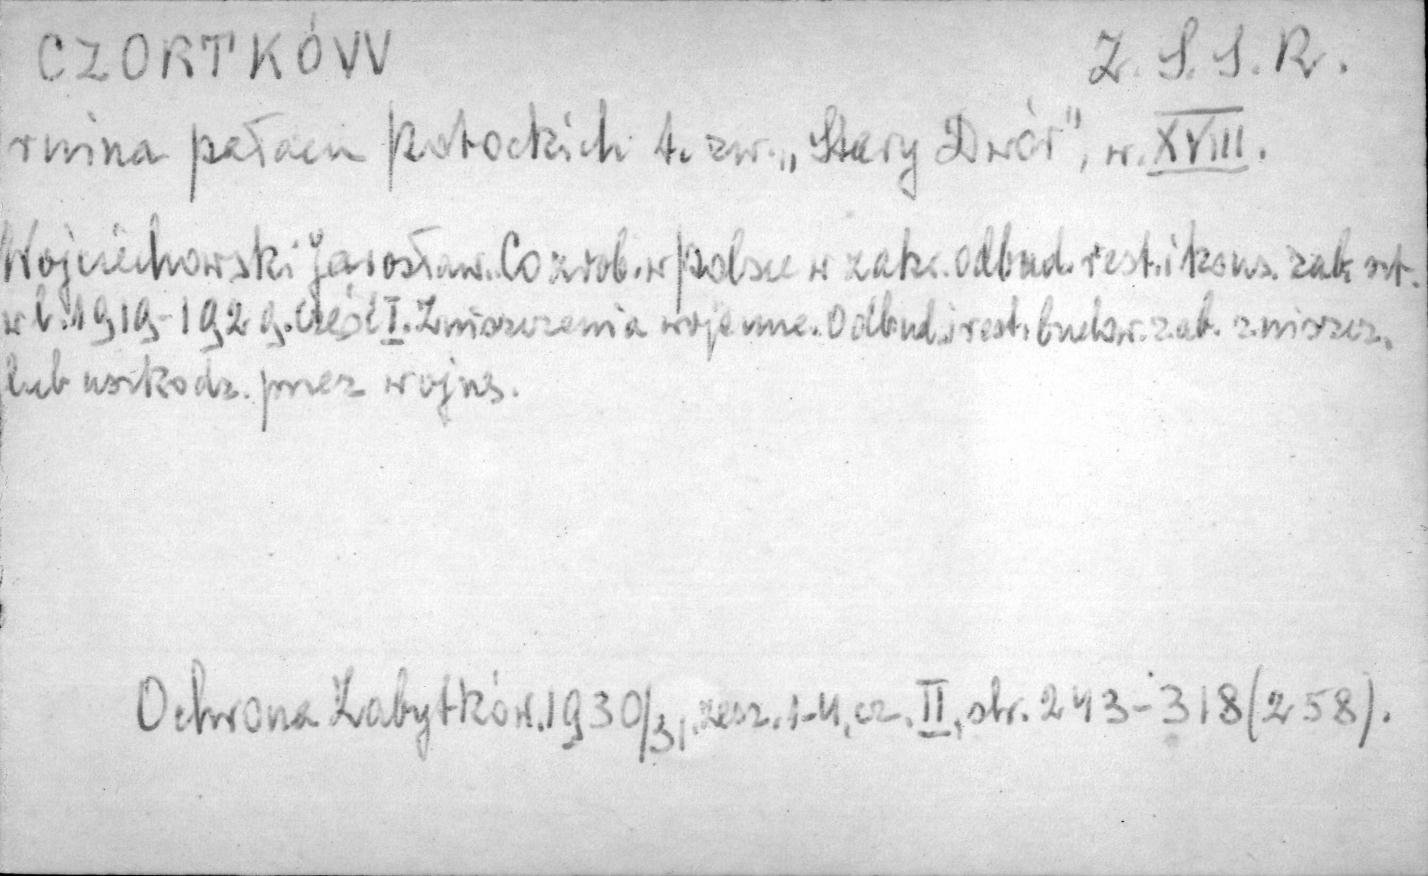 CZORTKÓW Z.S.S.R.
ruina pałacu Potockich t.zw. „Stary Dwór", w. XVIII.
Wojciechowski Jarosław. Co zrob. w Polsce w zakr. odbud. rest. i kons. zab. szt.
w l. 1919-1929. Część I. Zniszczenia wojenne. Odbud. i rest. budow. zab. zniszcz.
lub uszkodz. przez wojnę.
Ochrona Zabytków. 1930/31. zesz. 1-4, cz. II, str. 243-318 (258).